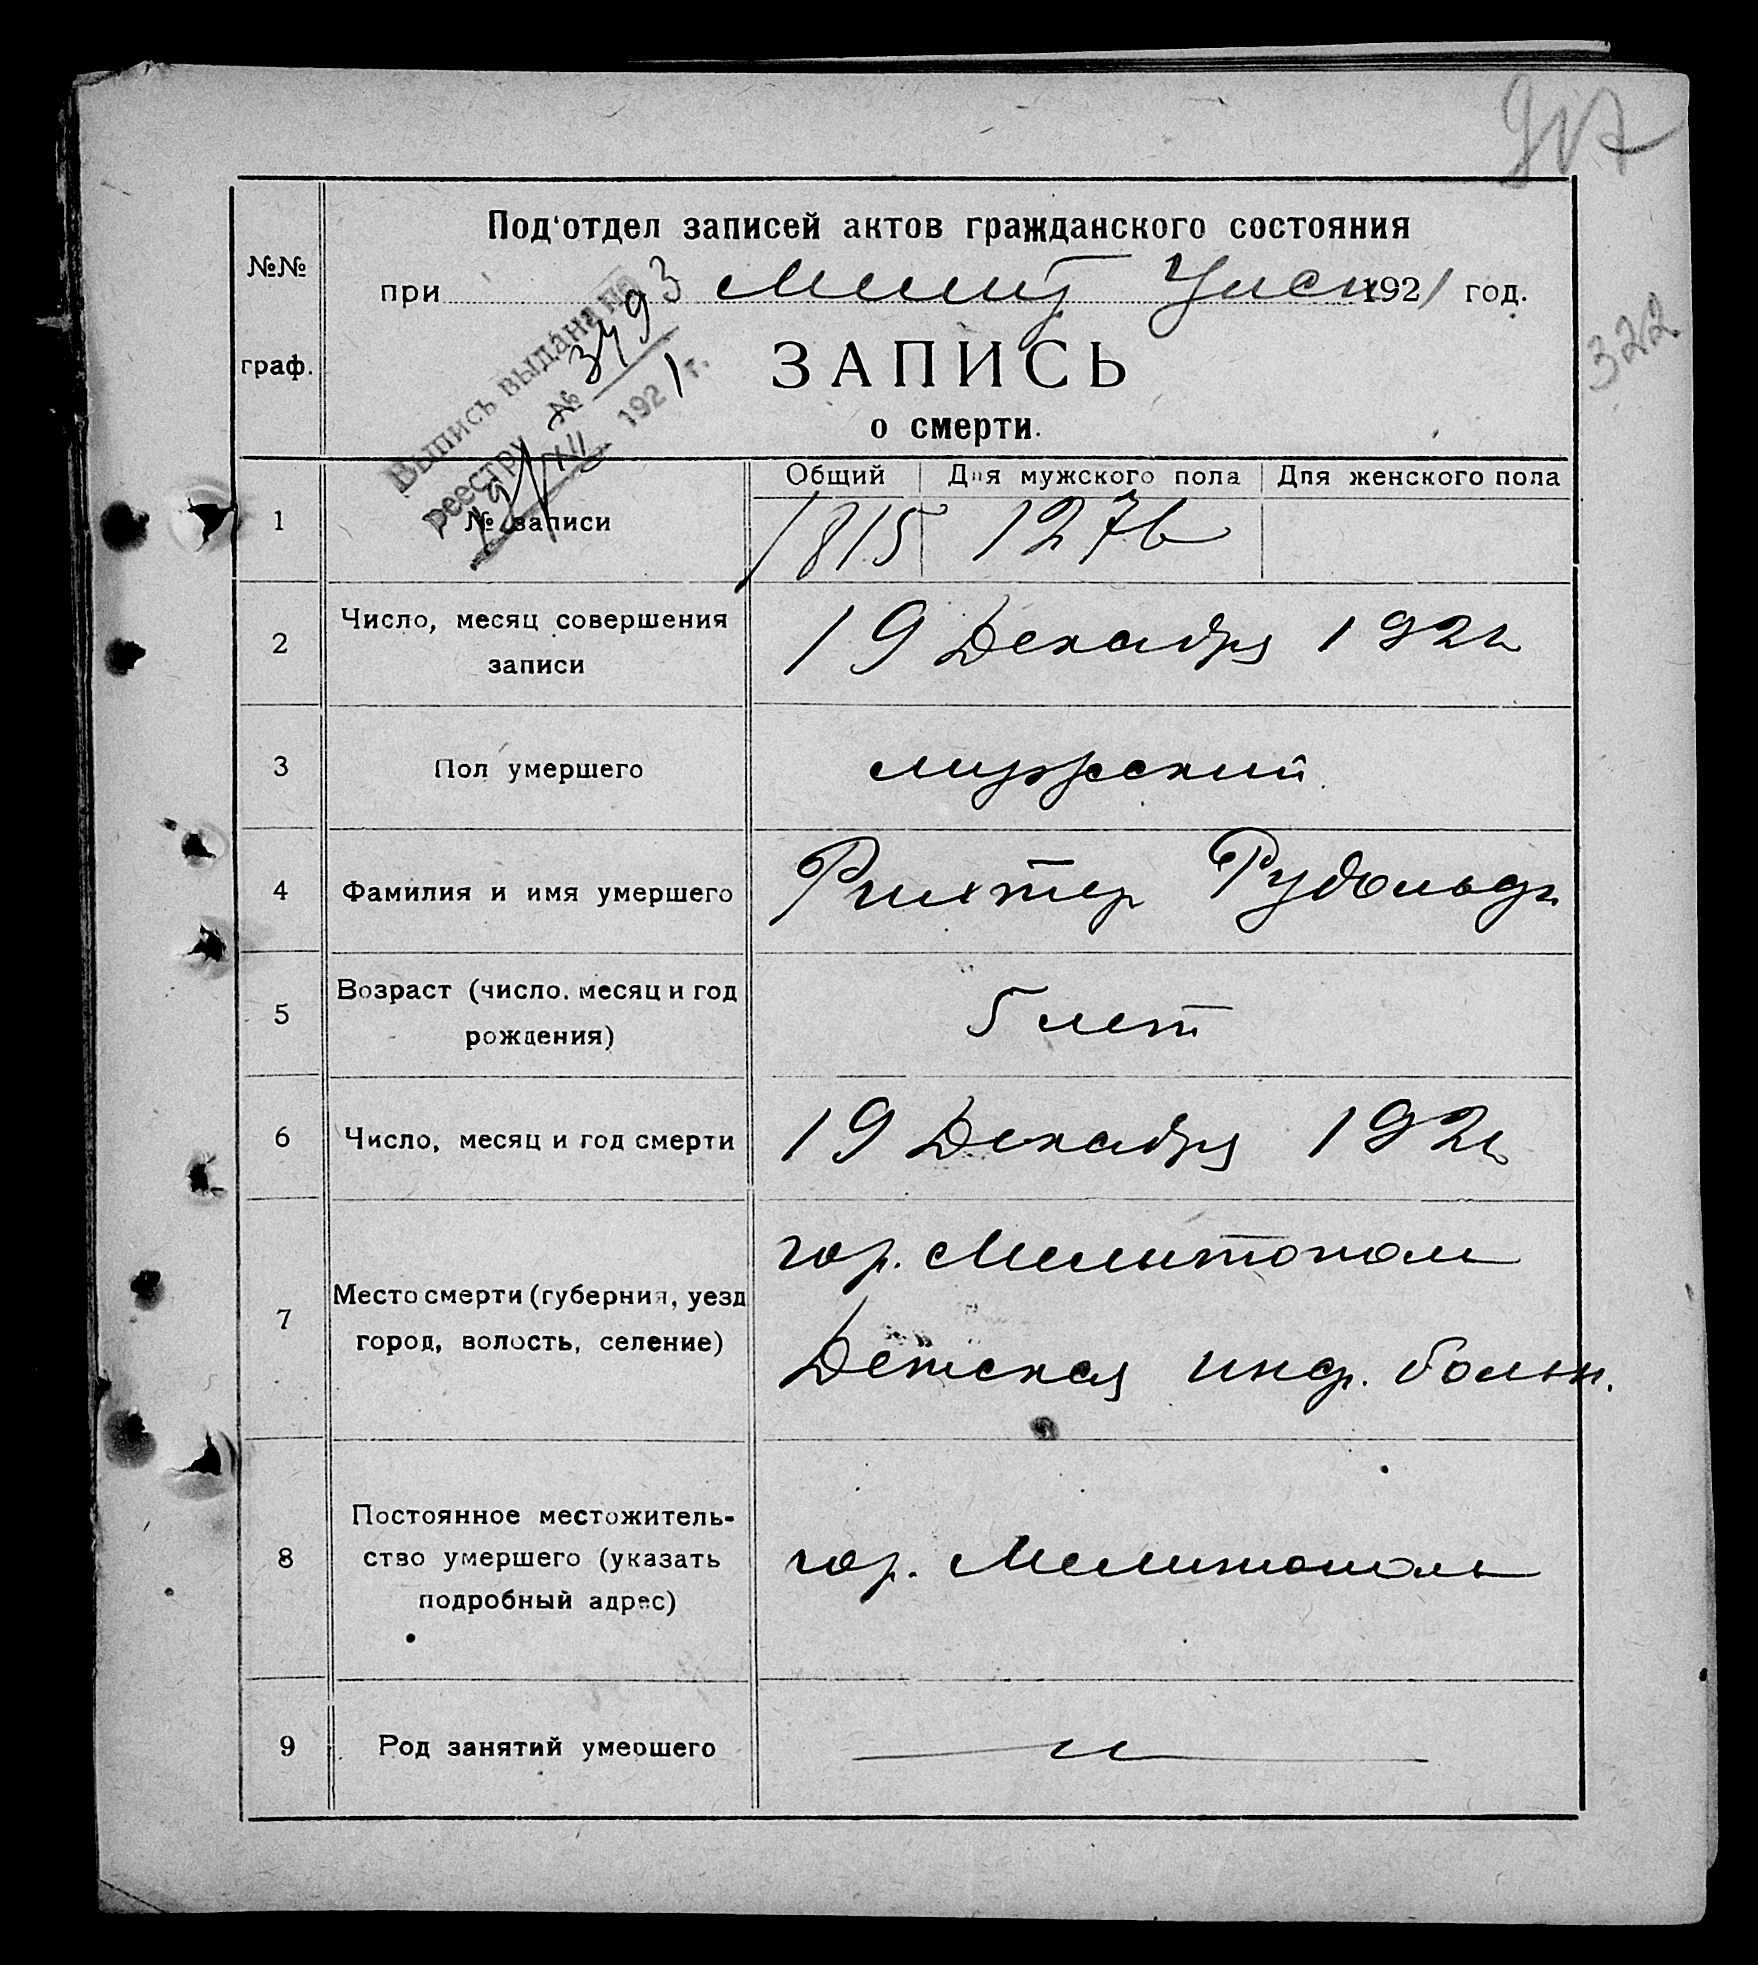 917
Под'отдел записей актов гражданского состояния
при Мелит Уисп 1921 год.
322
№№
граф.
ЗАПИСЬ
о смерти.
Выпись выдана по
реестру № 3493
19/XII 1921 г.
Общий Для мужского пола Для женского пола
1 № записи 1815 1276
2 Число, месяц совершения
записи
19 Декабря 1921
3 Пол умершего мужеский
4 Фамилия и имя умершего Рихтер Рудольф
5 Возраст (число, месяц и год
рождения)
5 лет
6 Число, месяц и год смерти 19 Декабря 1921
7 Место смерти (губерния, уезд
город, волость, селение)
гор. Мелитополь
Детская инф. больн.
8 Постоянное местожитель-
ство умершего (указать
подробный адрес)
гор. Мелитополь
9 Род занятий умершего